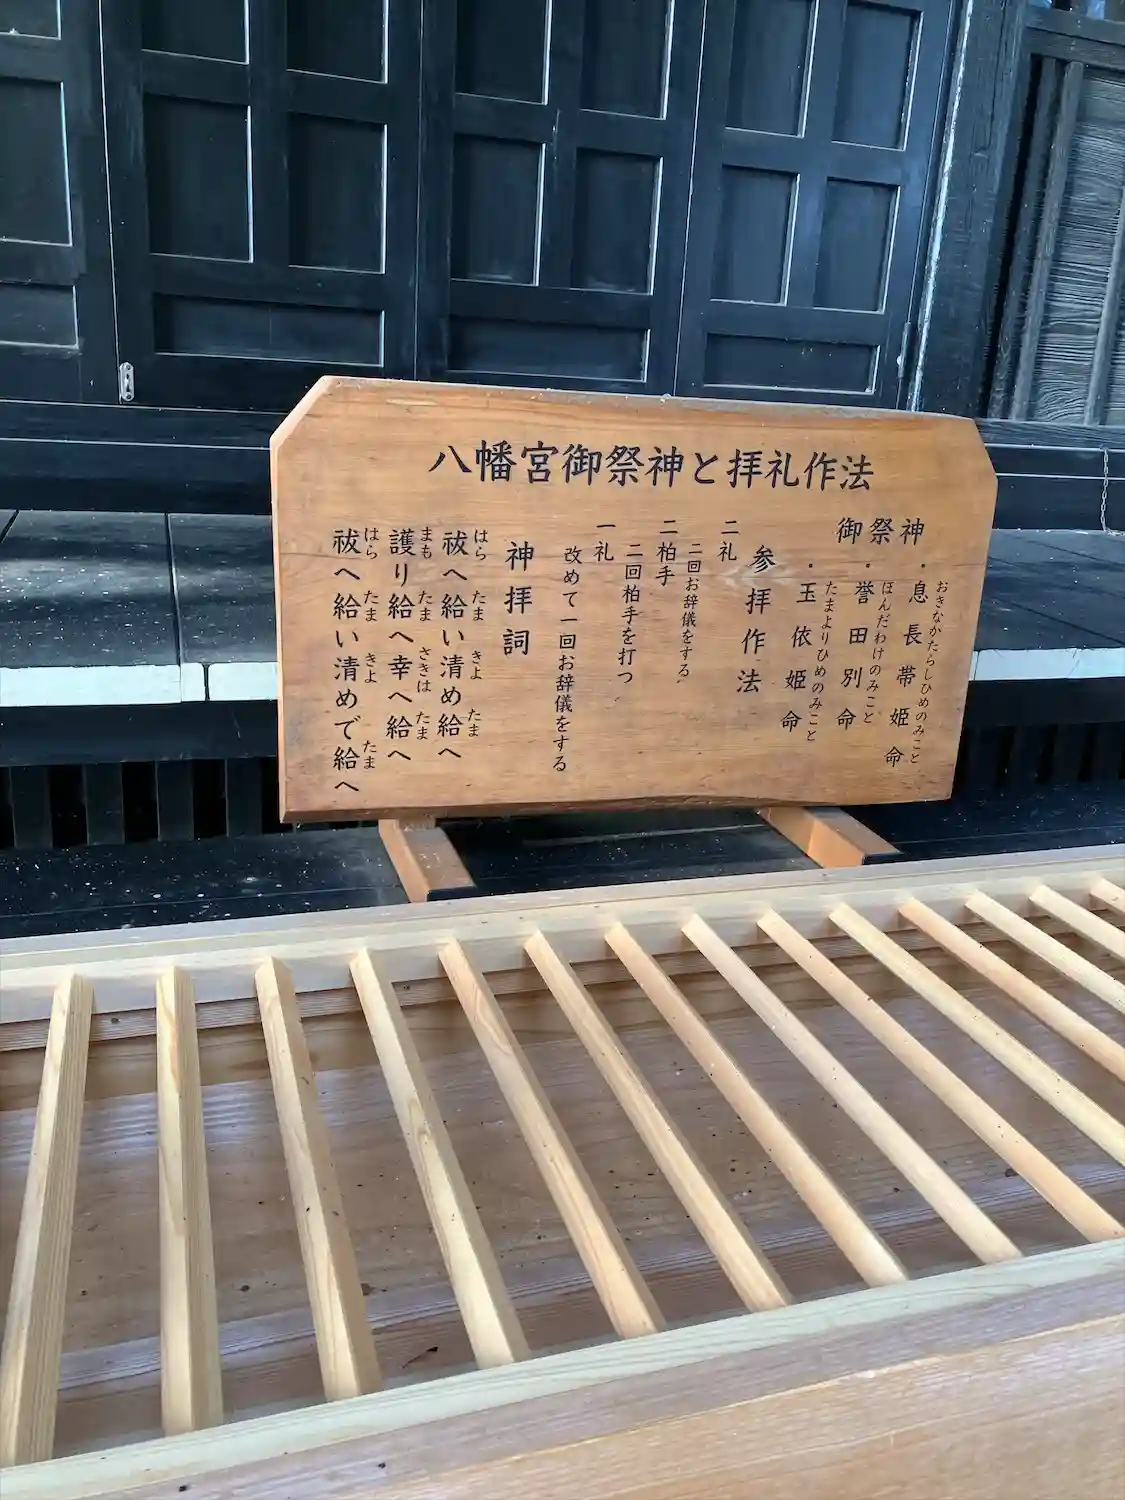 八幡宮御祭神と拝礼作法
御祭神
・息長帯姫命
おきなかたらしひめのみこと
・誉田別命
ほんだわけのみこと
・玉依姫命
たまよりひめのみこと
参拝作法
二礼
二回お辞儀をする
二柏手
二回柏手を打つ
一礼
改めて一回お辞儀をする
神拝詞
祓へ給い清め給へ
はら たま きよ たま
護り給へ幸へ給へ
まも たま さきは たま
祓へ給い清めで給へ
はら たま きよ たま